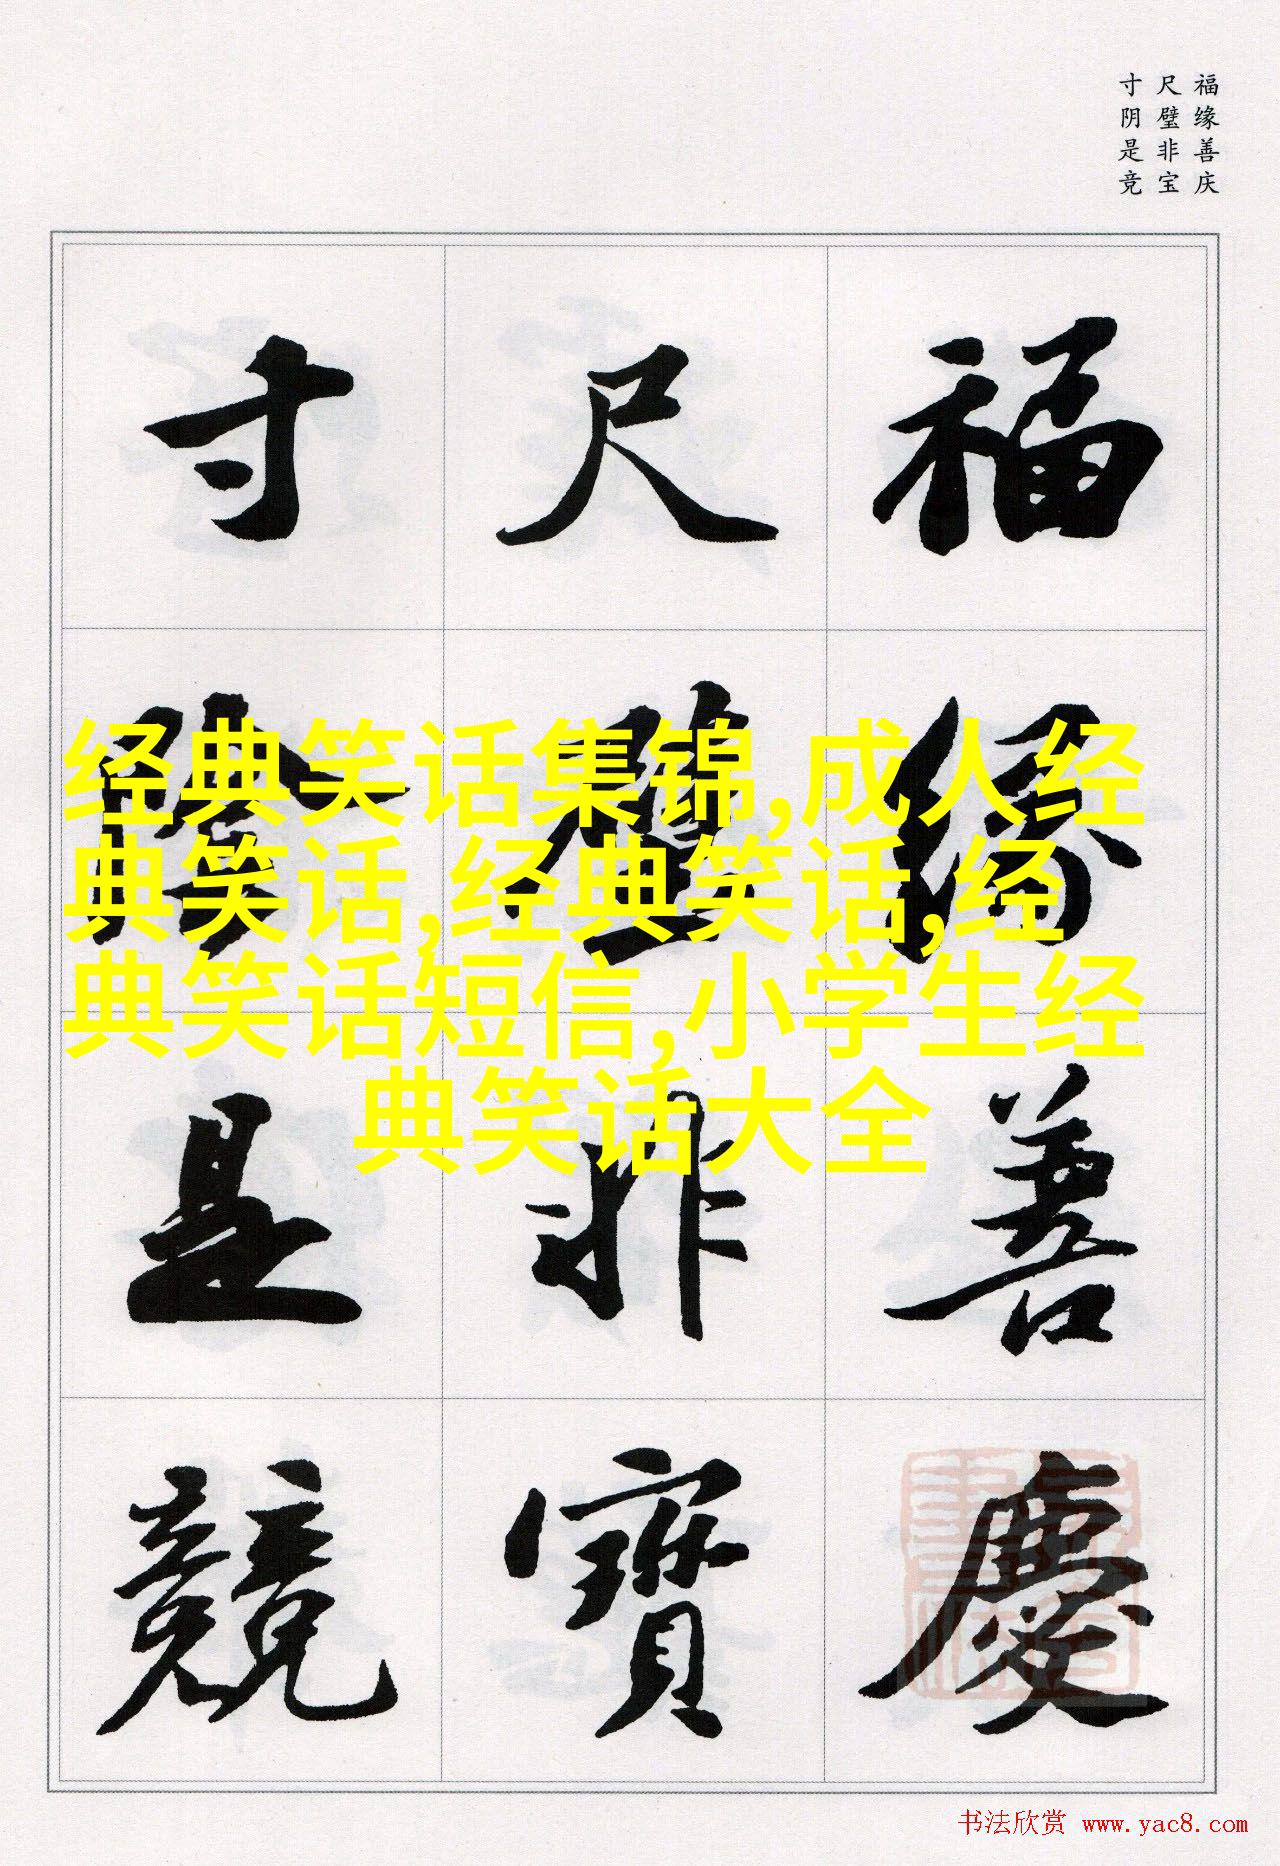 福缘善庆
尺璧非宝
寸阴是竞
福緣善慶
尺璧非寶
寸陰是競
经典笑话集锦,成人经
典笑话,经典笑话,经
典笑话短信,小学生经
典笑话大全
书法欣赏 www.yac8.com